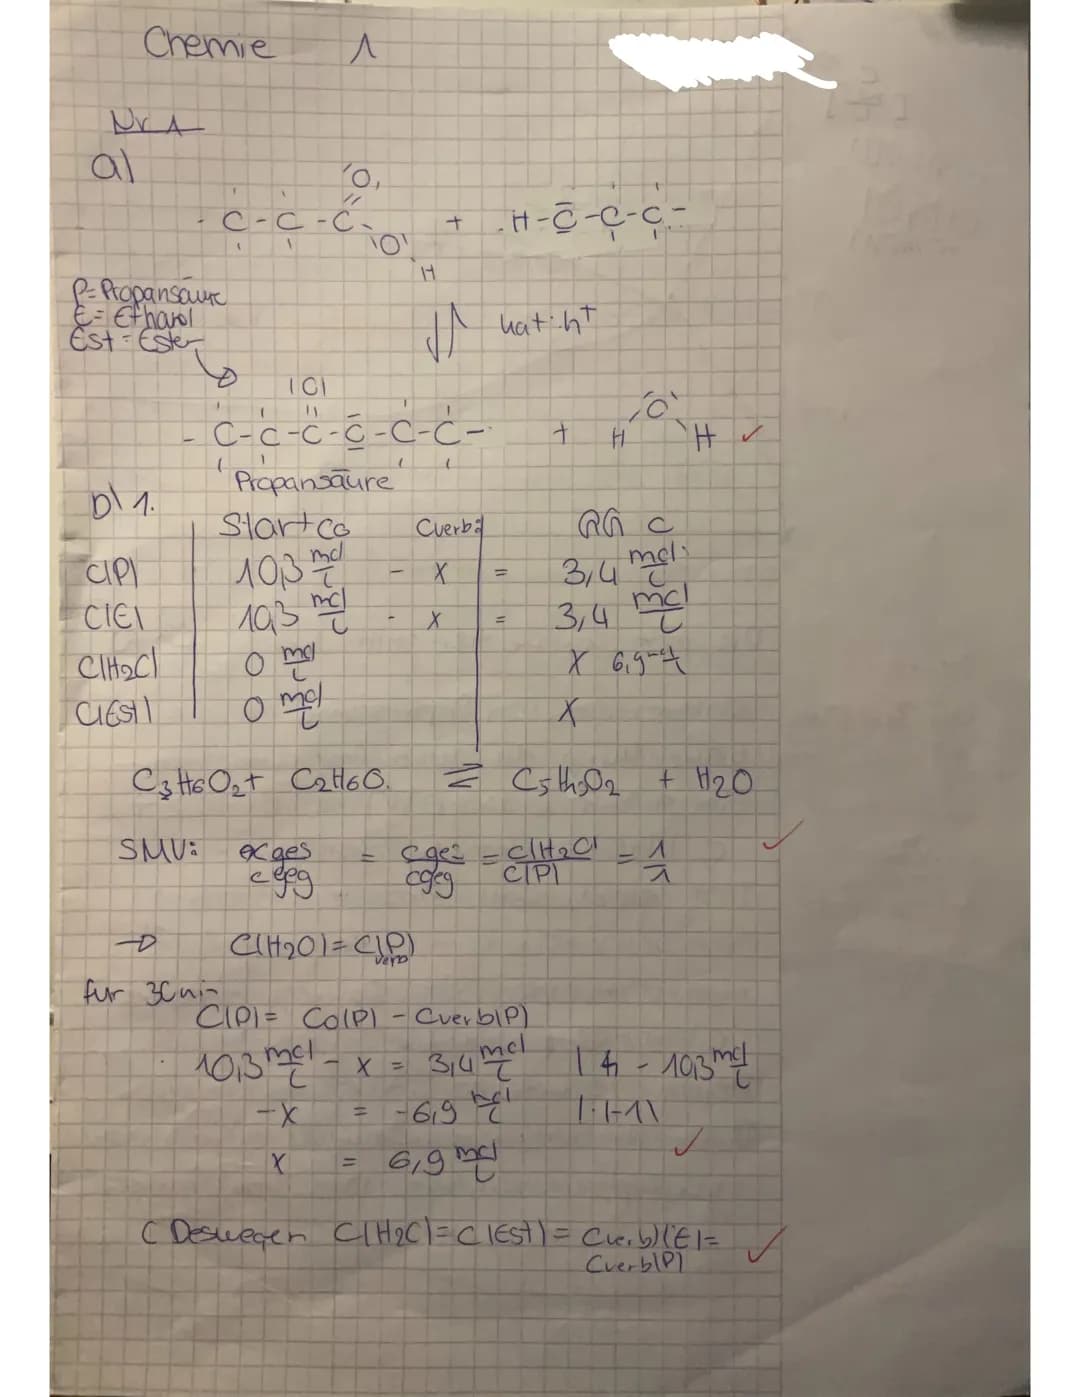 Chemie 1
Nr 1
a)
- C - C - C O + H - O - C - C -
O
H
P = Propansäure
E = Ethanol
Est = Ester
kat: h+
|O|
- C - C - C - O - C - C - + H O H
Propansäure
b) 1.
Start c0 Cverb RG C
C(P) 10,3 mol/L - x = 3,4 mol/L
C(E) 10,3 mol/L - x = 3,4 mol/L
C(H2O) 0 mol/L x 6,9 mol/L
C(Est) 0 mol/L x
C3H6O2 + C2H6O ⇌ C5H10O2 + H2O
SMV: ges/geg = cges/cgeg = C(H2O)/C(P) = 1/1
→ C(H2O) = C(P) verb
für 30min
C(P) = C0(P) - Cverb(P)
10,3 mol/L - x = 3,4 mol/L | - 10,3 mol/L
-x = -6,9 mol/L | · (-1)
x = 6,9 mol/L
Deswegen C(H2O) = C(Est) = Cverb(E) =
Cverb(P)